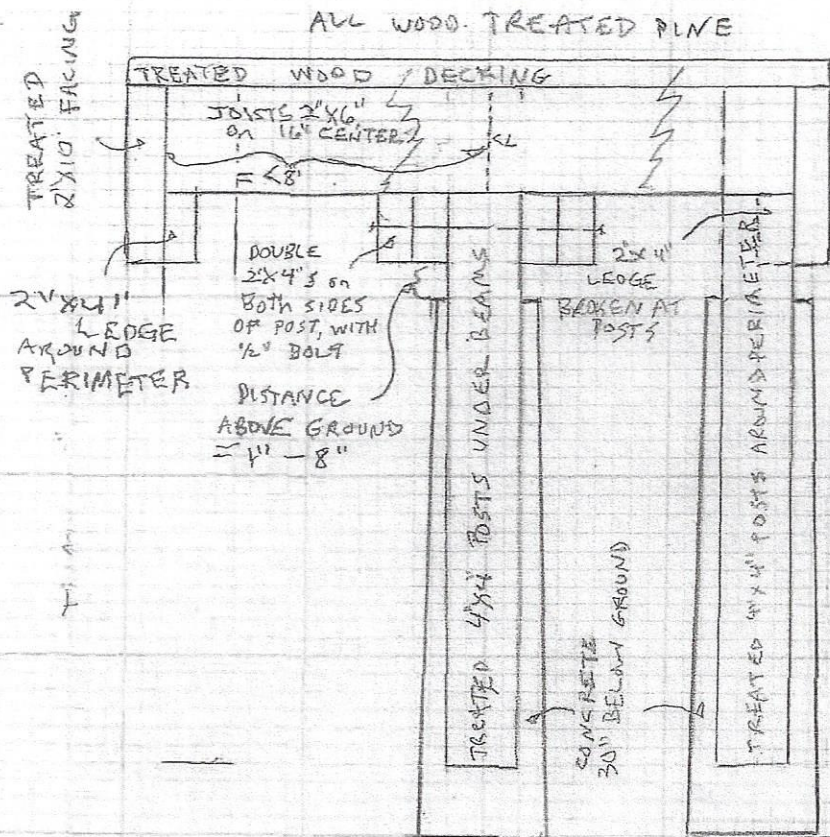 ALL WOOD TREATED PINE
TREATED
2"X10" FACING
TREATED WOOD DECKING
JOISTS 2"X6"
on 16" CENTER
= <8'
2"X4"
LEDGE
AROUND
PERIMETER
DOUBLE
2"X4"s on
BOTH SIDES
OF POST, WITH
1/2" BOLT
DISTANCE
ABOVE GROUND
= 1" - 8"
2"X4"
LEDGE
BROKEN AT
POSTS
TREATED 4"X4" POSTS UNDER BEAMS
CONCRETE
30" BELOW GROUND
TREATED 4"X4" POSTS AROUND PERIMETER